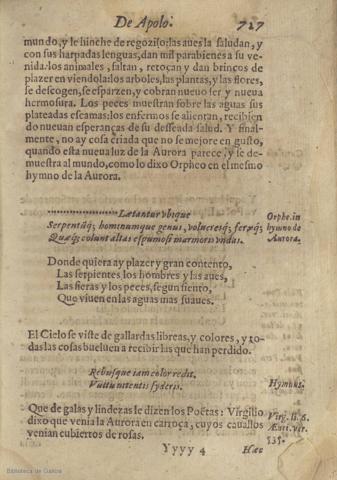 De Apolo. 727
mundo, y le hinche de regozijo: las aues la saludan, y
con sus harpadas lenguas, dan mil parabienes a su ve
nida: los animales, saltan, retoçan y dan brincos de
plazer en viendola: los arboles, las plantas, y las flores,
se descogen, se esparzen, y cobran nueuo ser y nueua
hermosura. Los peces muestran sobre las aguas sus
plateadas escamas: los enfermos se alientan, recibien
do nueuan esperanças de su desseada salud. Y final-
mente, no ay cosa criada que no se mejore en gusto,
quando esta nueua luz de la Aurora parece, y se de-
muestra al mundo, como lo dixo Orpheo en el mesmo
hymno de la Aurora.
Lætantur vbique
Serpentũq; hominumque genus, volucresq; feræq;
Quæq; colunt altas espumosi marmoris vndas.
Orphe. in
hymno de
Aurora.
Donde quiera ay plazer y gran contento,
Las serpientes los hombres y las aues,
Las fieras y los peces, segun siento,
Que viuen en las aguas mas suaues.
El Cielo se viste de gallardas libreas, y colores, y to-
das las cosas bueluen a recibir las que han perdido.
Rebusque iam color redit.
Vultu nitentis syderis.
Hymnus.
Que de galas y lindezas le dizen los Poëtas: Virgilio
dixo que venia la Aurora en carroça, cuyos cauallos
venian cubiertos de rosas.
Virg. li. 6.
Ænei. ver.
535.
Yyyy 4 Hæc
Biblioteca de Galicia